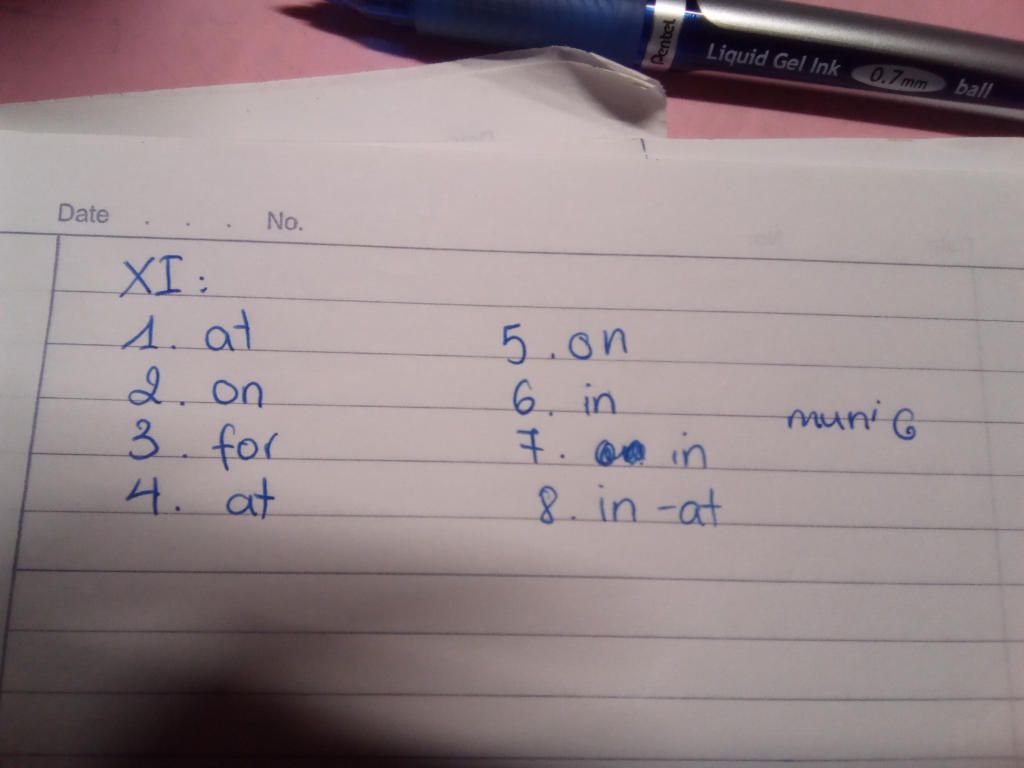 Pentel
Liquid Gel Ink 0.7mm ball
Date . . . No.
XI:
1. at
2. on
3. for
4. at
5. on
6. in
7. in
8. in - at